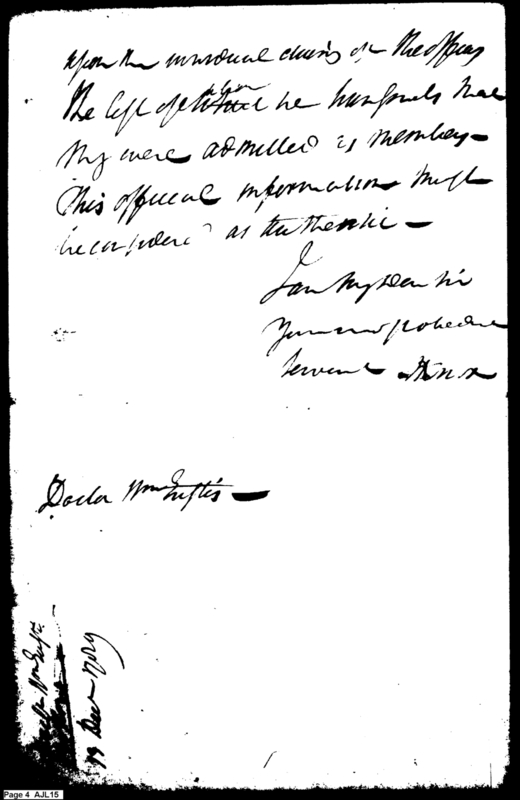 upon the individual claims of the officers
the list of whom he transmits that
they were admitted as members —
This official information must
be considered as authentic —
I am my dear sir
Your most obedient
servant HKnox
Doctor Wm Eustis —
Doctor Wm Eustis
19 Decr 1789
Page 4 AJL15